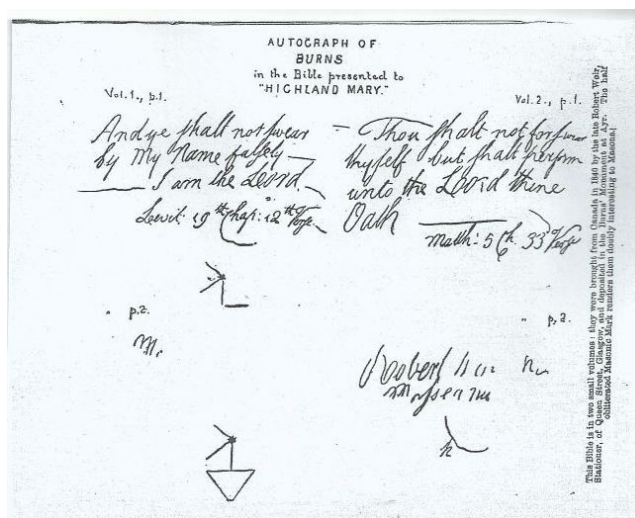 AUTOGRAPH OF
BURNS
in the Bible presented to
"HIGHLAND MARY."
Vol. 1., p.1.
And ye shall not swear
by My Name falsely —
— I am the Leord
Levit: 19th Chap: 12th Verse
p.2.
M.
Vol. 2., p.1.
— Thou shalt not forswear
thyself but shalt perform
unto the Loord thine
Oath
Matth: 5 Ch. 33d Verse
p, 2.
Robert
This Bible is in two small volumes: they were brought from Canada in 1840 by the late Robert Weir,
Stationer, of Queen Street, Glasgow, and deposited in the Burns' Monument at Ayr. The half
obliterated Masonic Mark renders them doubly interesting to Masons.]